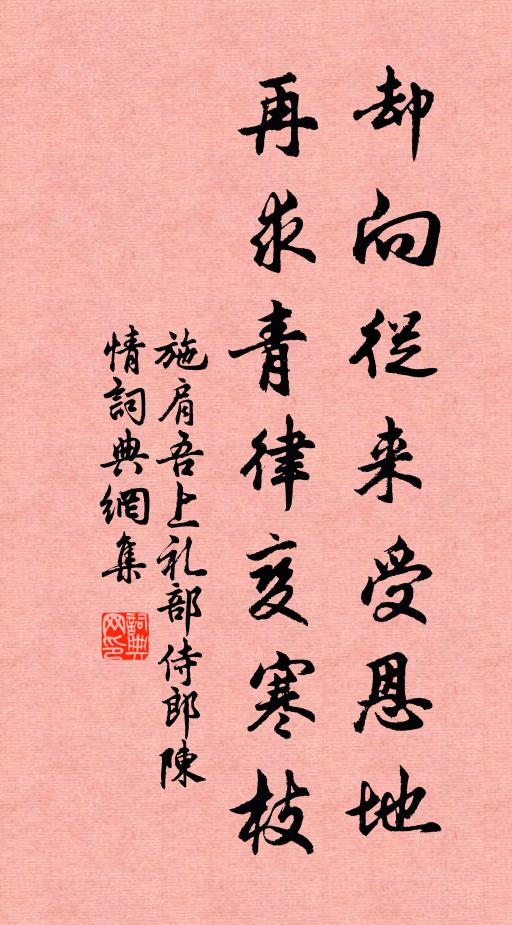 却向従来受恩地
再求青律变寒枝
施肩吾上礼部侍郎陳
情詞典網集
詞典网印